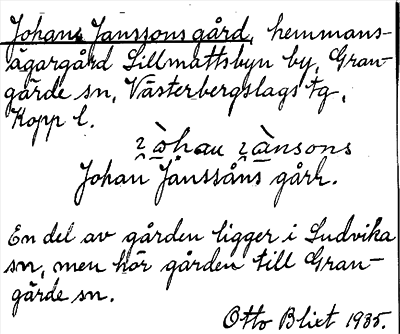 Johans Janssons gård, hemmans-
ägargård Lillmattsbyn by, Gran-
gärde sn, Västerbergslags tg,
Kopp l.
Johan Janssåns gårh.
En del av gården ligger i Ludvika
sn, men hör gården till Gran-
gärde sn.
Otto Blixt 1935.